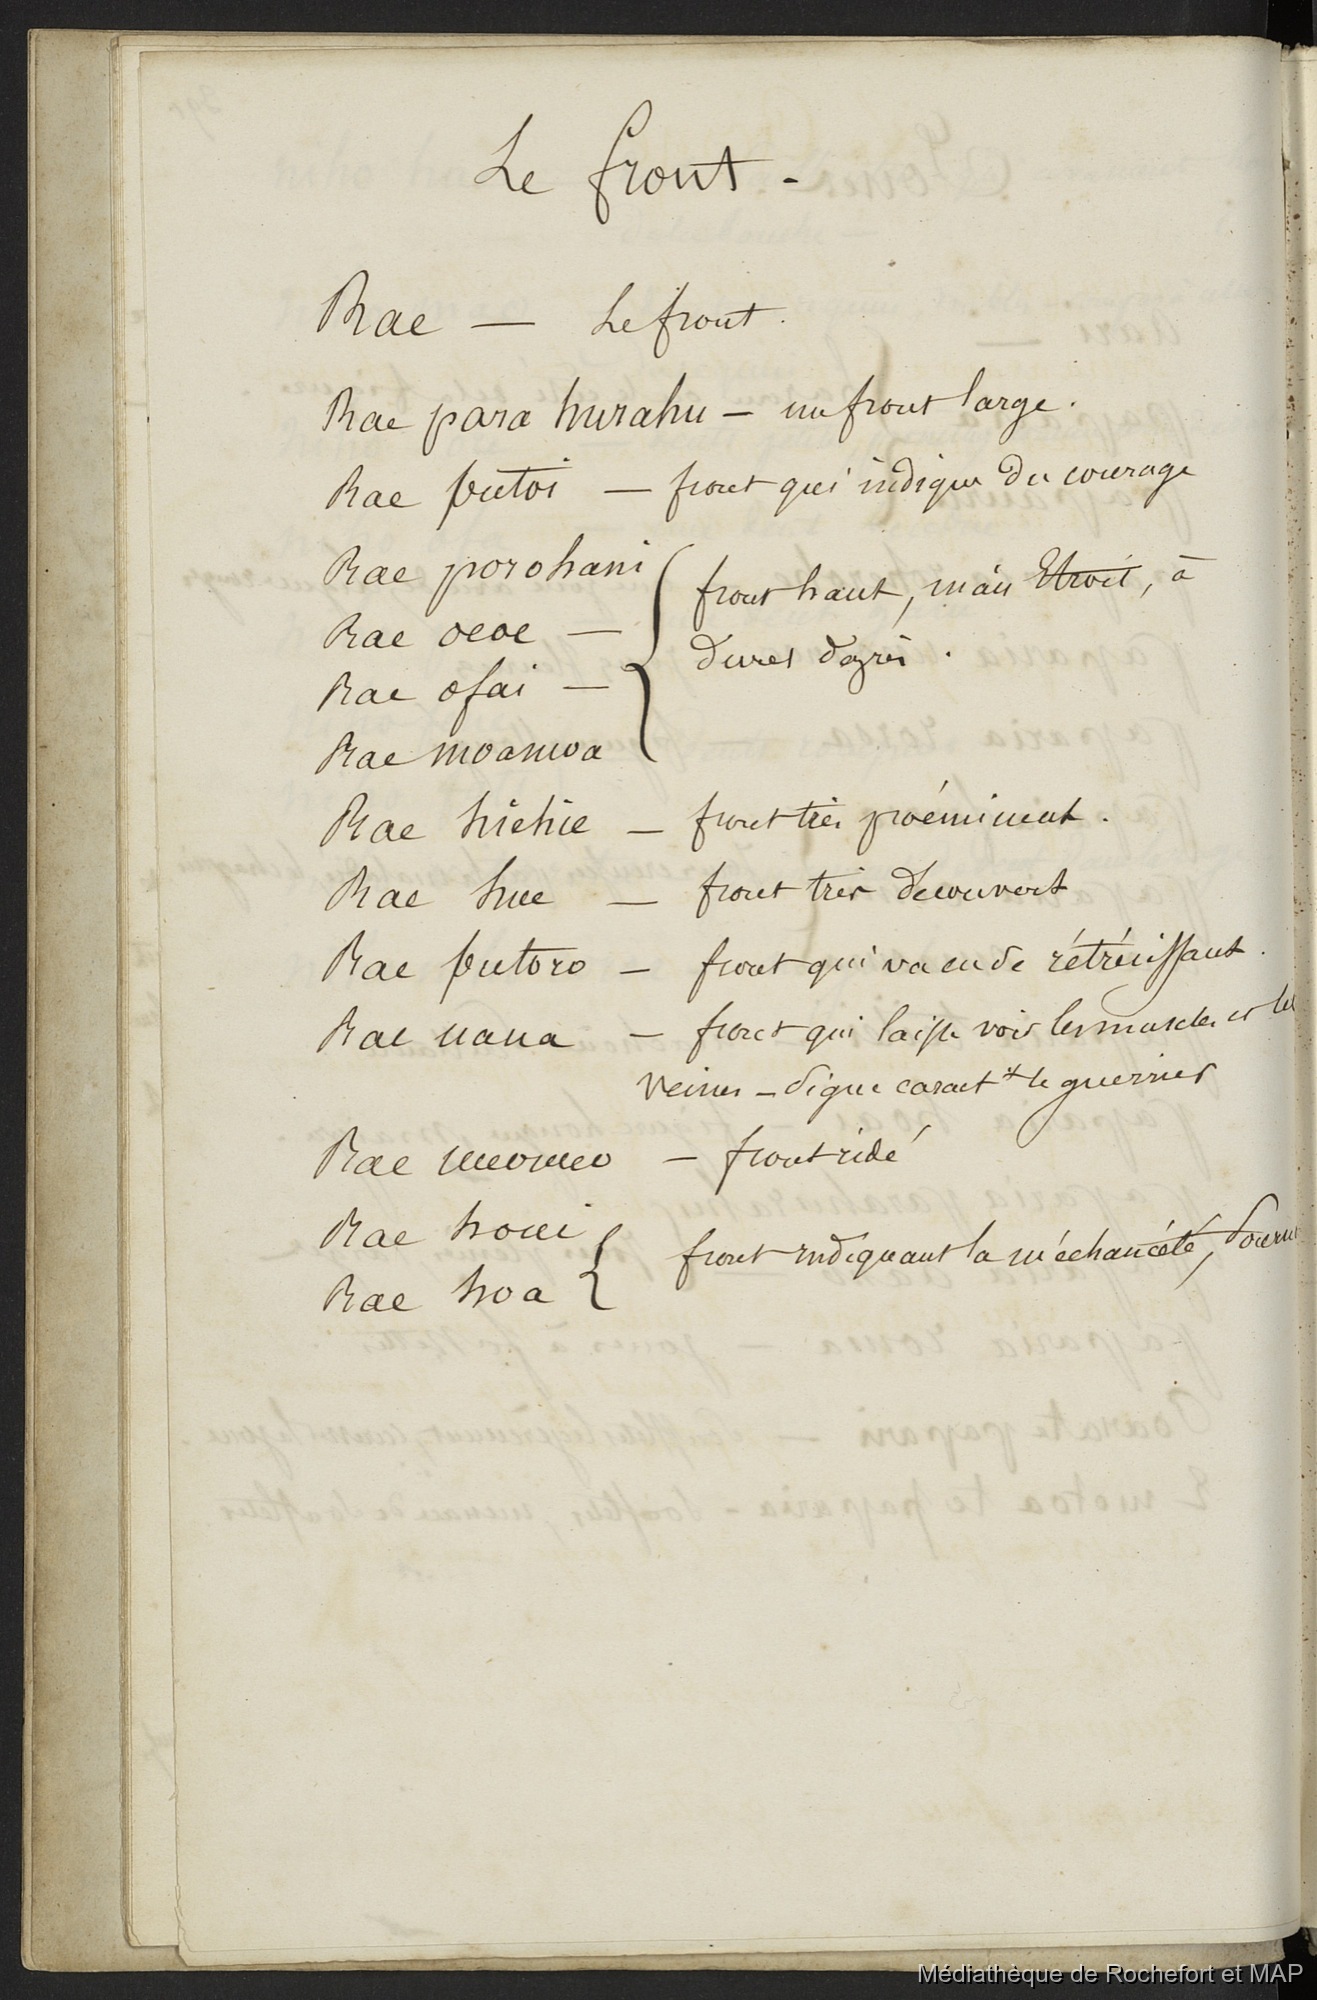 Le front -
Rae — Le front.
Rae para hurahu — un front large.
Rae putoi — front qui indique du courage
Rae porohani
Rae oeoe —
Rae ofai —
Rae moamoa
front haut, mais Etroit, à
divers degrés.
Rae hiehie — front très proéminent.
Rae hue — front très decouvert
Rae putoro — front qui va en se rétrécissant.
Rae uaua — front qui laisse voir les muscles et les
veines — signe caract. le guerrier
Rae meomeo — front ridé
Rae houi
Rae hoa
front indiquant la méchanceté,
Médiathèque de Rochefort et MAP